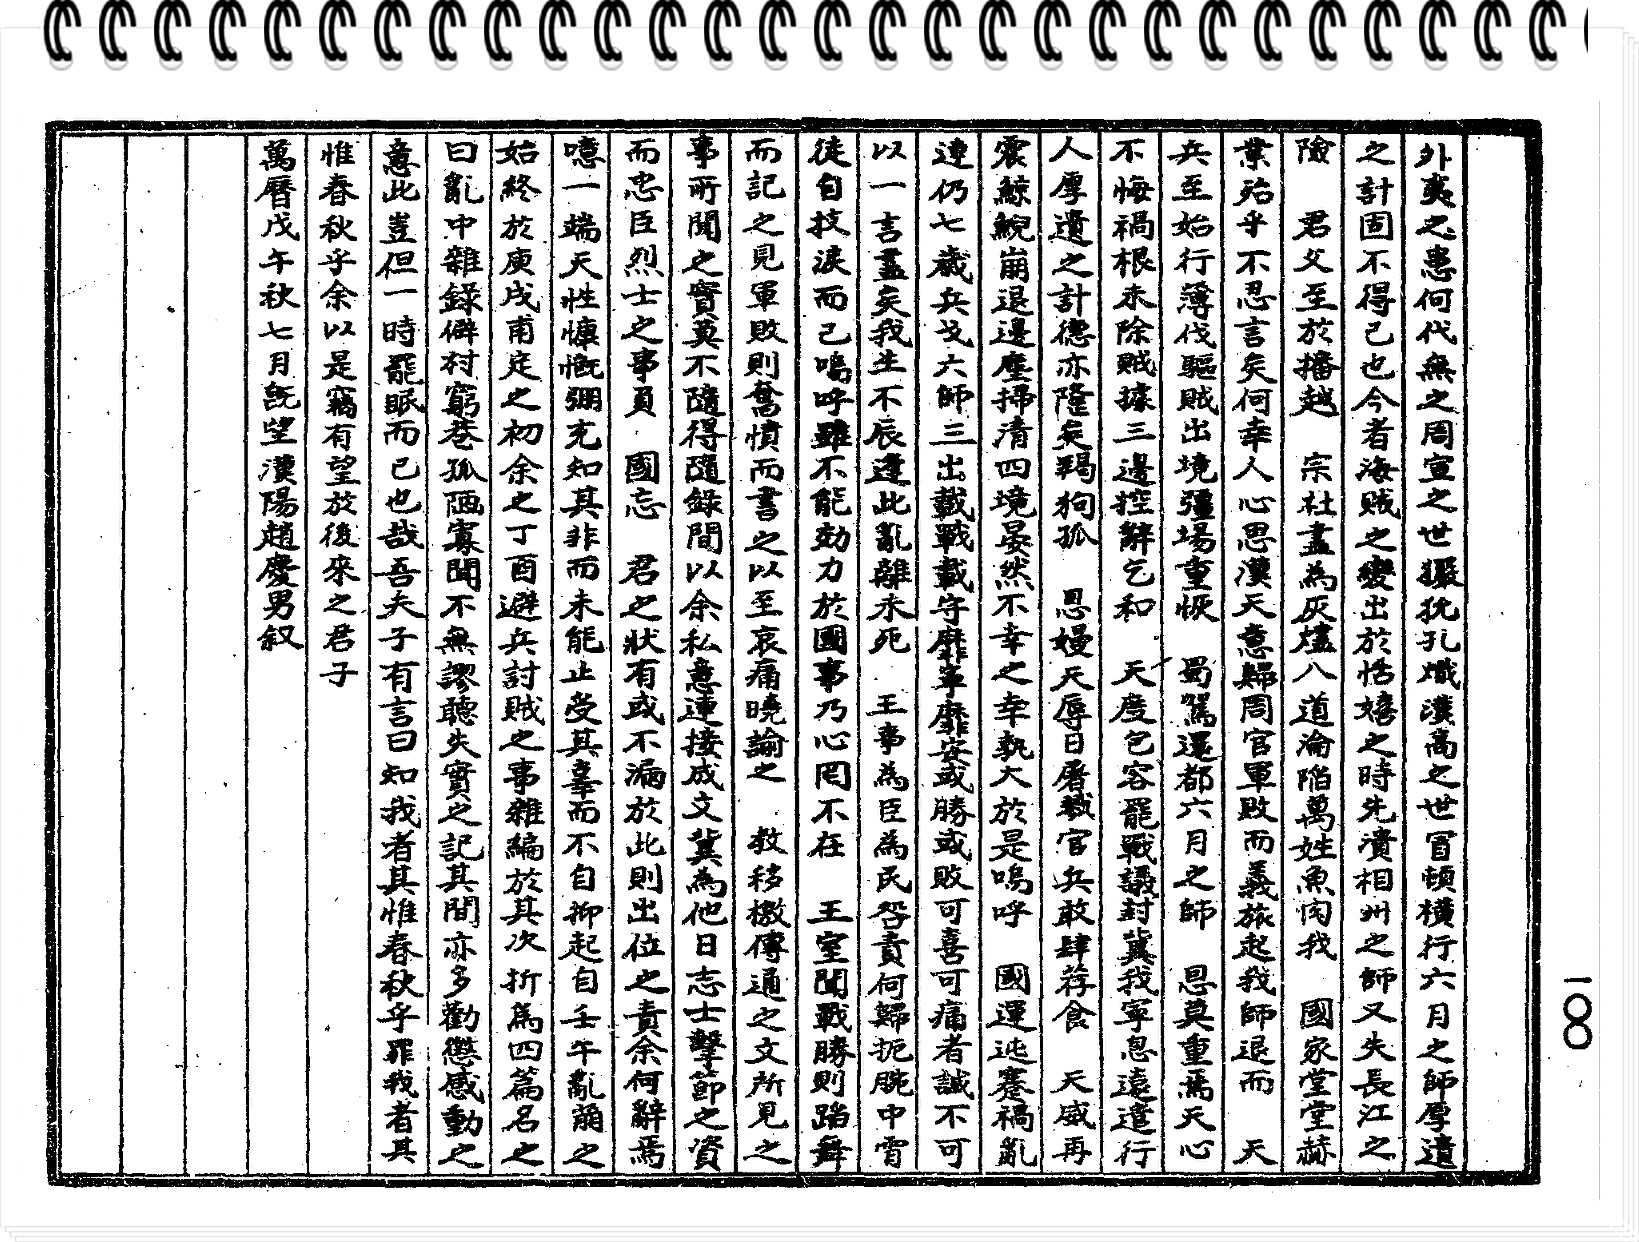 外夷之患何代無之周宣之世玁狁孔熾漢高之世冒頓橫行六月之師厚遺
之計固不得已也今者海賊之變出於恬嬉之時先潰相州之師又失長江之
險　君父至於播越　宗社盡為灰燼八道淪陷萬姓魚肉我　國家堂堂赫
業殆乎不忍言矣何幸人心思漢天意歸周官軍敗而義旅起我師退而　天
兵至始行薄伐驅賊出境彊場重恢　蜀駕還都六月之師　恩莫重焉天心
不悔禍根未除賊據三邊控辭乞和　天度包容罷戰議封冀我寧息遠遣行
人厚遺之計德亦隆矣羯狗孤　恩嫚天辱日屠戮官兵敢肆荐食　天威再
震鯨鯢崩退邊塵掃清四境晏然不幸之幸孰大於是嗚呼　國運迍蹇禍亂
連仍七歲兵戈六師三出載戰載守靡寧靡安或勝或敗可喜可痛者誠不可
以一言盡矣我生不辰逢此亂離未死　王事為臣為民咎責何歸扼腕中霄
徒自抆淚而已嗚呼雖不能効力於國事乃心罔不在　王室聞戰勝則蹈舞
而記之見軍敗則奮憤而書之以至哀痛曉諭之　教移檄傳通之文所見之
事所聞之實莫不隨得隨錄間以余私意連接成文冀為他日志士擊節之資
而忠臣烈士之事負　國忘　君之狀有或不漏於此則出位之責余何辭焉
噫一端天性慷慨弸充知其非而未能止受其辜而不自抑起自壬午亂萠之
始終於庚戌甫定之初余之丁酉避兵討賊之事雜編於其次折為四篇名之
曰亂中雜錄僻村窮巷孤陋寡聞不無謬聽失實之記其間亦多勸懲感動之
意此豈但一時罷眠而已也哉吾夫子有言曰知我者其惟春秋乎罪我者其
惟春秋乎余以是竊有望於後來之君子
萬曆戊午秋七月旣望漢陽趙慶男叙
一〇〇